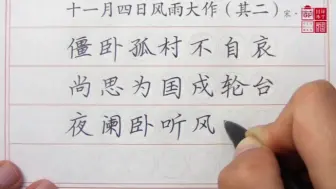 十一月四日风雨大作（其二）宋·
僵卧孤村不自哀
尚思为国戍轮台
夜阑卧听风